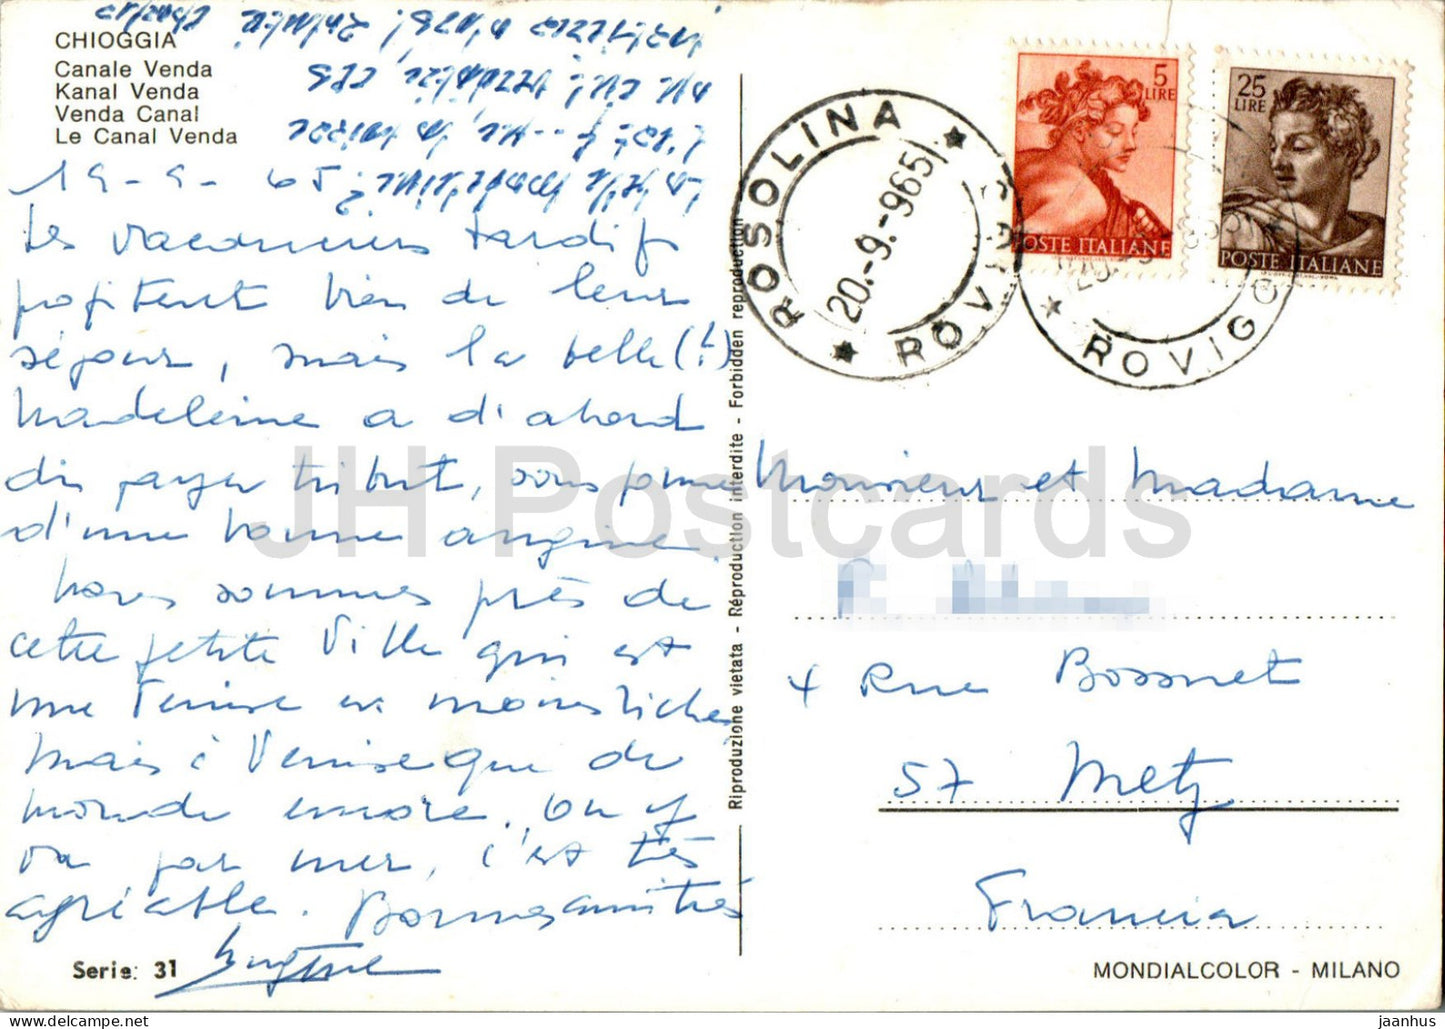 CHIOGGIA
Canale Venda
Kanal Venda
Venda Canal
Le Canal Venda
19-9-65
Les vacanciers tardifs
profitent bien de leur
séjour, mais la belle (?)
Madeleine a d'abord
dû payer tribut, sous forme
d'une bonne angine.
Nous sommes près de
cette petite Ville qui est
une Venise en moins riche,
mais à Venise que de
monde encore. On y
va par mer, c'est très
agréable. Bonnes amitiés
Serie: 31
La belle Madeleine?
Riproduzione vietata - Réproduction interdite - Forbidden reproduction
ROSOLINA
ROVIGO
20.-9.-965
5 LIRE
POSTE ITALIANE
25 LIRE
POSTE ITALIANE
ROVIGO
Monsieur et Madame
4 Rue Bossuet
57 Metz
Francia
MONDIALCOLOR - MILANO
JH Postcards
jaanhus